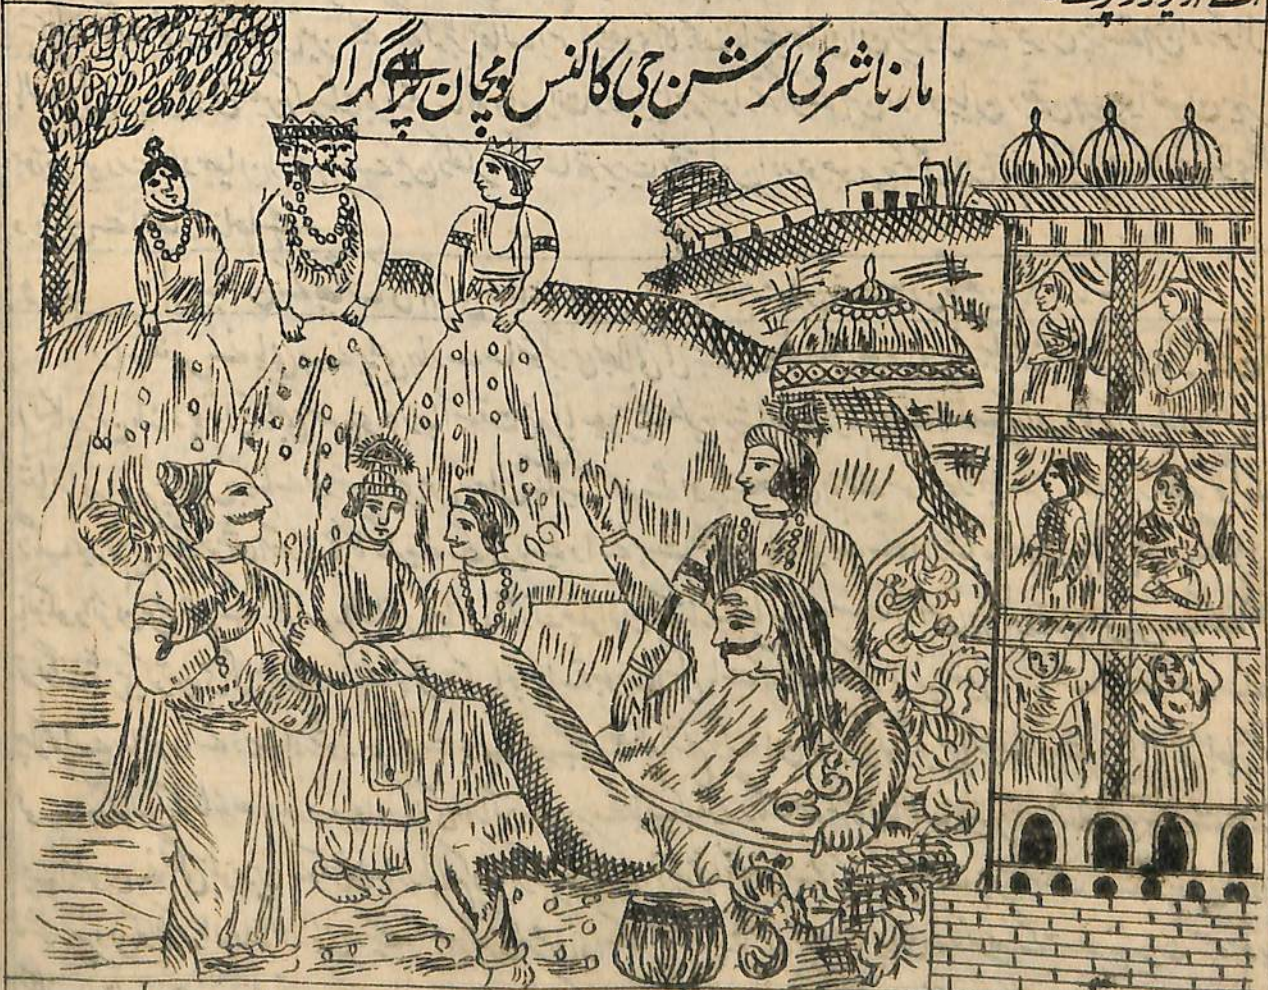 مارنا شری کرشن جی کا کنس کو مچان پر سے گرا کر